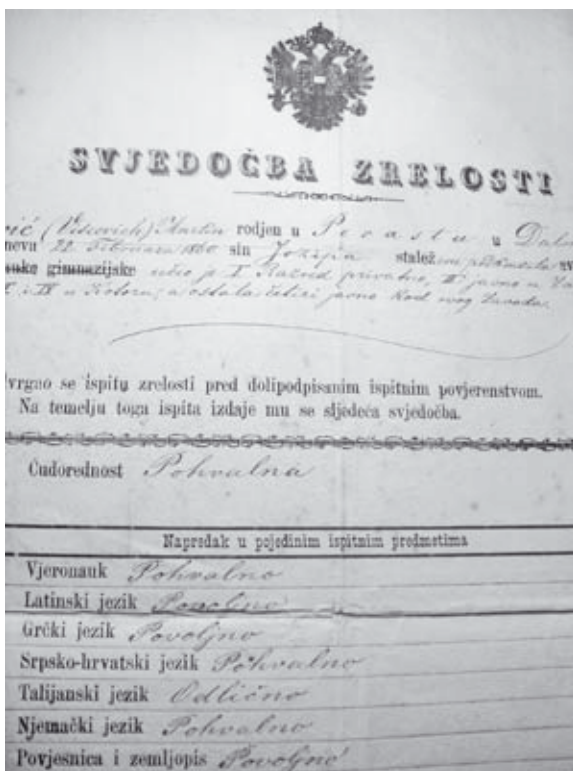 SVJEDOČBA ZRELOSTI
vić (Viscovich) Martin rodjen u Perastu u Dal
neva 22 Februara 1860 sin Jozipa stalež
gimnazijske učio je I. Razred privatno, II javno u
i IV u Kotoru, a ostala četiri javno kod ovog Zavoda.
vrgao se ispitu zrelosti pred dolipodpisanim ispitnim povjerenstvom.
Na temelju toga ispita izdaje mu se sljedeća svjedočba.
Ćudorednost Pohvalna
Napredak u pojedinim ispitnim predmetima
Vjeronauk Pohvalno
Latinski jezik Povoljno
Grčki jezik Povoljno
Srpsko-hrvatski jezik Pohvalno
Talijanski jezik Odlično
Njemački jezik Pohvalno
Povjesnica i zemljopis Povoljno